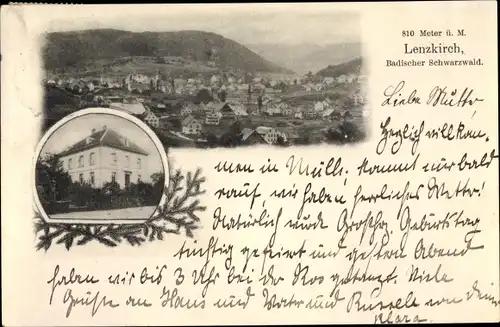 810 Meter ü. M.
Lenzkirch,
Badischer Schwarzwald.
Liebe Mutter,
Herzlich willkom-
men in Müllh. kommt nur bald
rauf, wir haben herrliches Wetter!
Natürlich wurde Großhg. Geburtstag
tüchtig gefeiert und gestern Abend
haben wir bis 3 Uhr bei der getanzt. Viele
Grüße an Hans und Vater und von deiner
Klara.